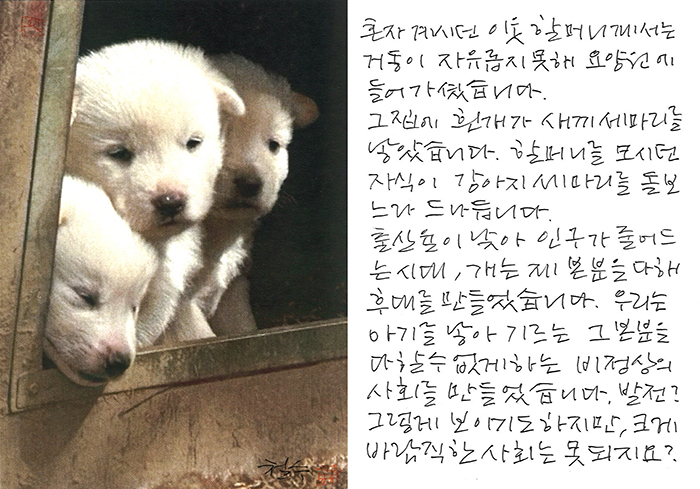 혼자 계시던 이웃 할머니께서는
거동이 자유롭지 못해 요양원에
들어가셨습니다.
그 집에 흰개가 새끼 세마리를
낳았습니다. 할머니를 모시던
자식이 강아지 세마리를 돌보
느라 드나듭니다.
출산율이 낮아 인구가 줄어드
는 시대, 개는 제 본분을 다해
후대를 만들었습니다. 우리는
아기를 낳아 기르는 그 본분을
다할수 없게하는 비정상의
사회를 만들었습니다. 발전?
그렇게 보이기도하지만, 크게
바람직한 사회는 못되지요?